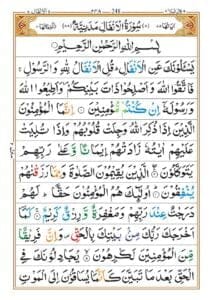 سُوْرَةُ الْاَنْفَالِ مَدَنِيَّةٌ
بِسْمِ اللّٰهِ الرَّحْمٰنِ الرَّحِيْمِ
يَسْـَٔلُوْنَكَ عَنِ الْاَنْفَالِ ؕ قُلِ الْاَنْفَالُ لِلّٰهِ وَالرَّسُوْلِ ۚ
فَاتَّقُوا اللّٰهَ وَاَصْلِحُوْا ذَاتَ بَيْنِكُمْ ۪ وَاَطِيْعُوا اللّٰهَ
وَرَسُوْلَهٗۤ اِنْ كُنْتُمْ مُّؤْمِنِيْنَ ۝ اِنَّمَا الْمُؤْمِنُوْنَ
الَّذِيْنَ اِذَا ذُكِرَ اللّٰهُ وَجِلَتْ قُلُوْبُهُمْ وَاِذَا تُلِيَتْ
عَلَيْهِمْ اٰيٰتُهٗ زَادَتْهُمْ اِيْمَانًا وَّعَلٰى رَبِّهِمْ
يَتَوَكَّلُوْنَ ۝ الَّذِيْنَ يُقِيْمُوْنَ الصَّلٰوةَ وَمِمَّا رَزَقْنٰهُمْ
يُنْفِقُوْنَ ۝ اُولٰٓئِكَ هُمُ الْمُؤْمِنُوْنَ حَقًّا ؕ لَهُمْ
دَرَجٰتٌ عِنْدَ رَبِّهِمْ وَمَغْفِرَةٌ وَّرِزْقٌ كَرِيْمٌ ۝ كَمَاۤ
اَخْرَجَكَ رَبُّكَ مِنْۢ بَيْتِكَ بِالْحَقِّ ۪ وَاِنَّ فَرِيْقًا
مِّنَ الْمُؤْمِنِيْنَ لَكٰرِهُوْنَ ۝ يُجَادِلُوْنَكَ فِى
الْحَقِّ بَعْدَ مَا تَبَيَّنَ كَاَنَّمَا يُسَاقُوْنَ اِلَى الْمَوْتِ